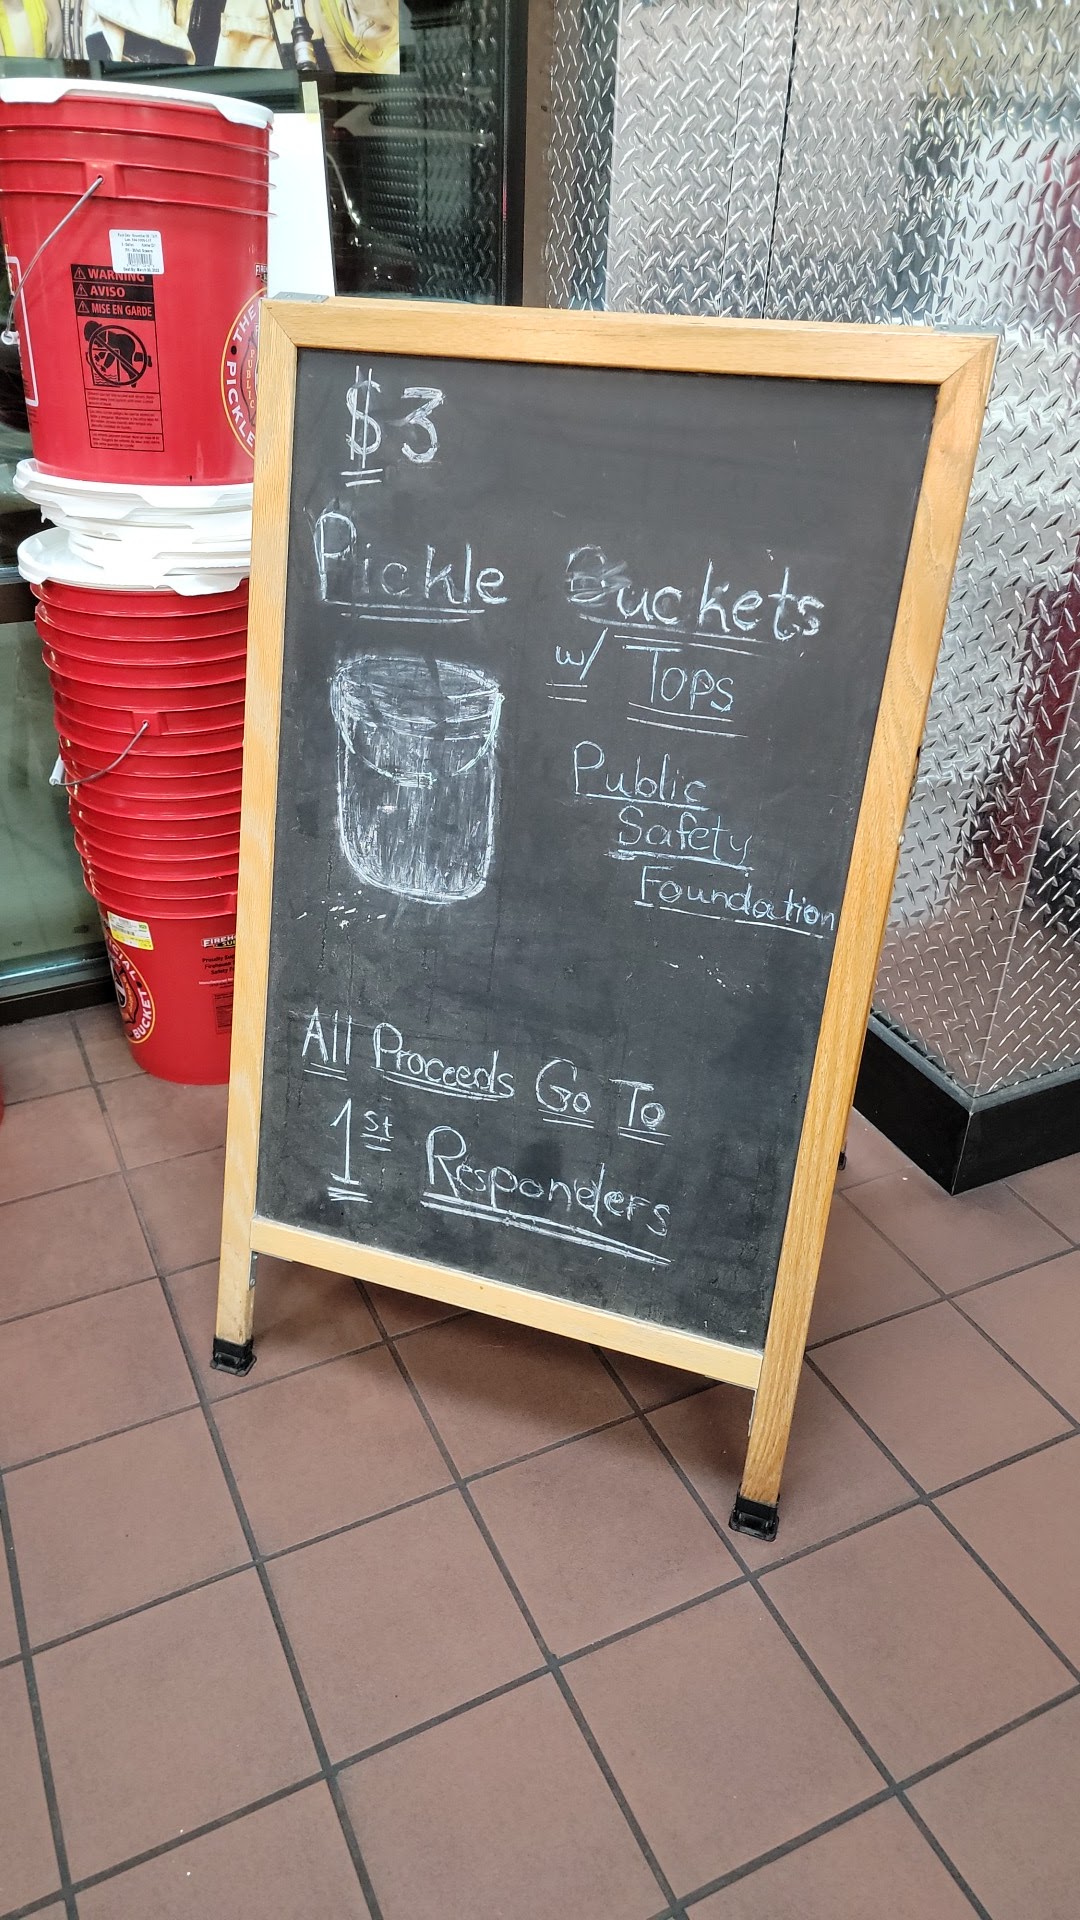 $3
Pickle Buckets
w/ Tops
Public
Safety
Foundation
All Proceeds Go To
1st Responders
WARNING
AVISO
MISE EN GARDE
THE
PUBLIC
PICKLE
BUCKET